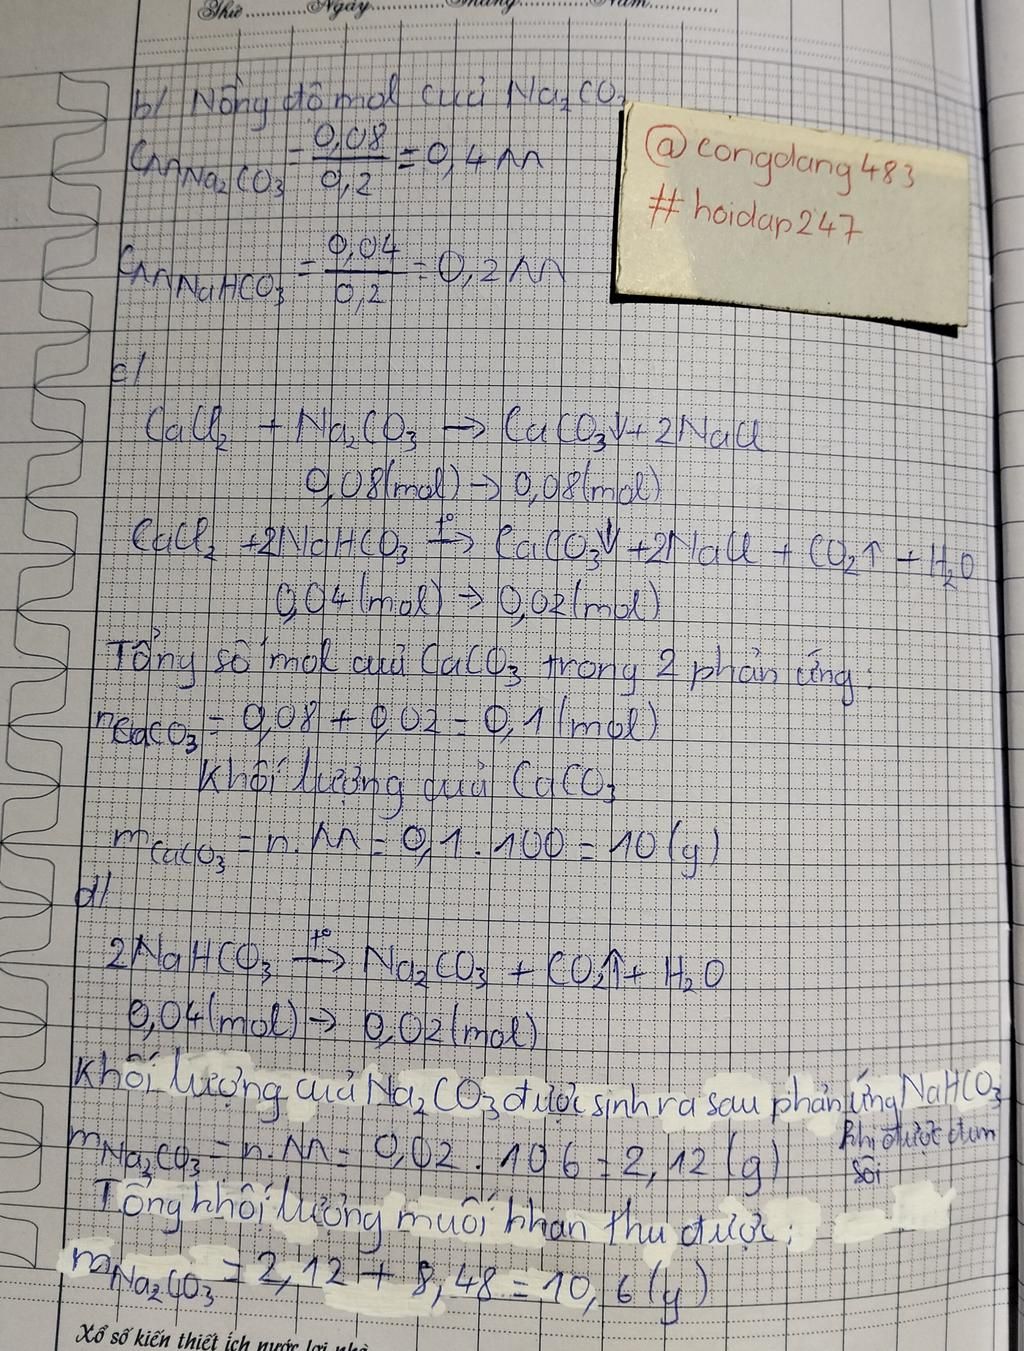 Thứ............Ngày............Tháng............Năm............
b/ Nồng độ mol của Na₂CO₃
CM Na₂CO₃ = 0,08 / 0,2 = 0,4 M
@congdang483
#hoidap247
CM NaHCO₃ = 0,04 / 0,2 = 0,2 M
c/
CaCl₂ + Na₂CO₃ → CaCO₃↓ + 2NaCl
0,08(mol) → 0,08(mol)
CaCl₂ + 2NaHCO₃ -t°→ CaCO₃↓ + 2NaCl + CO₂↑ + H₂O
0,04(mol) → 0,02(mol)
Tổng số mol quả CaCO₃ trong 2 phản ứng:
nCaCO₃ = 0,08 + 0,02 = 0,1(mol)
Khối lượng quả CaCO₃
mCaCO₃ = n.M = 0,1 . 100 = 10(g)
d/
2NaHCO₃ -t°→ Na₂CO₃ + CO₂↑ + H₂O
0,04(mol) → 0,02(mol)
Khối lượng của Na₂CO₃ được sinh ra sau phản ứng NaHCO₃
khi được đun
sôi
mNa₂CO₃ = n.M = 0,02 . 106 = 2,12(g)
Tổng khối lượng muối khan thu được:
mNa₂CO₃ = 2,12 + 8,48 = 10,6(g)
Xổ số kiến thiết ích nước lợi nhà